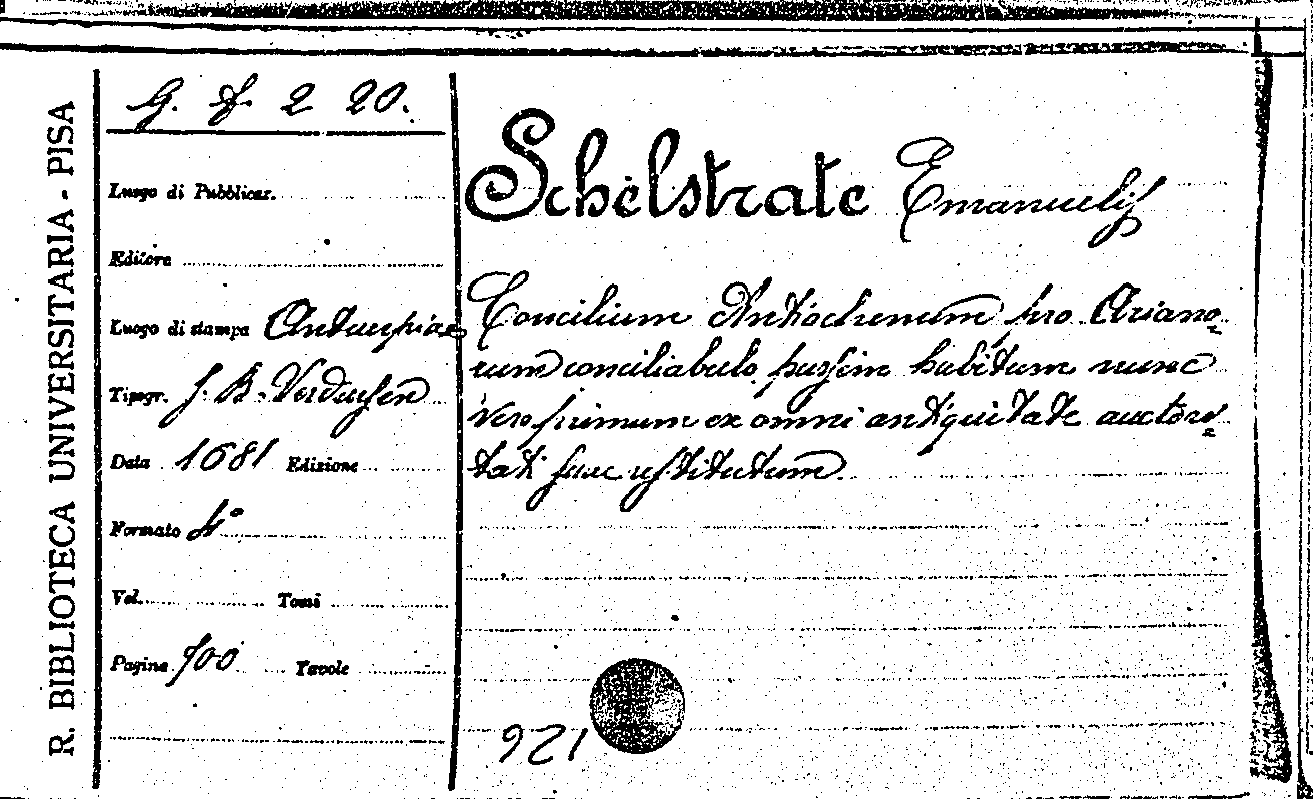 R. BIBLIOTECA UNIVERSITARIA - PISA
G. f. 2 20.
Luogo di Pubblicaz.
Editore
Luogo di stampa Antuerpiae
Tipogr. J. B. Verdussen
Data 1681 Edizione
Formato 4°
Vol. Tomi
Pagine 700 Tavole
Schelstrate Emanuelis
Concilium Antiochenum pro Ariano=
rum conciliabulo passim habitum nunc
vero primum ex omni antiquitate auctori=
tati suae restitutum.
921